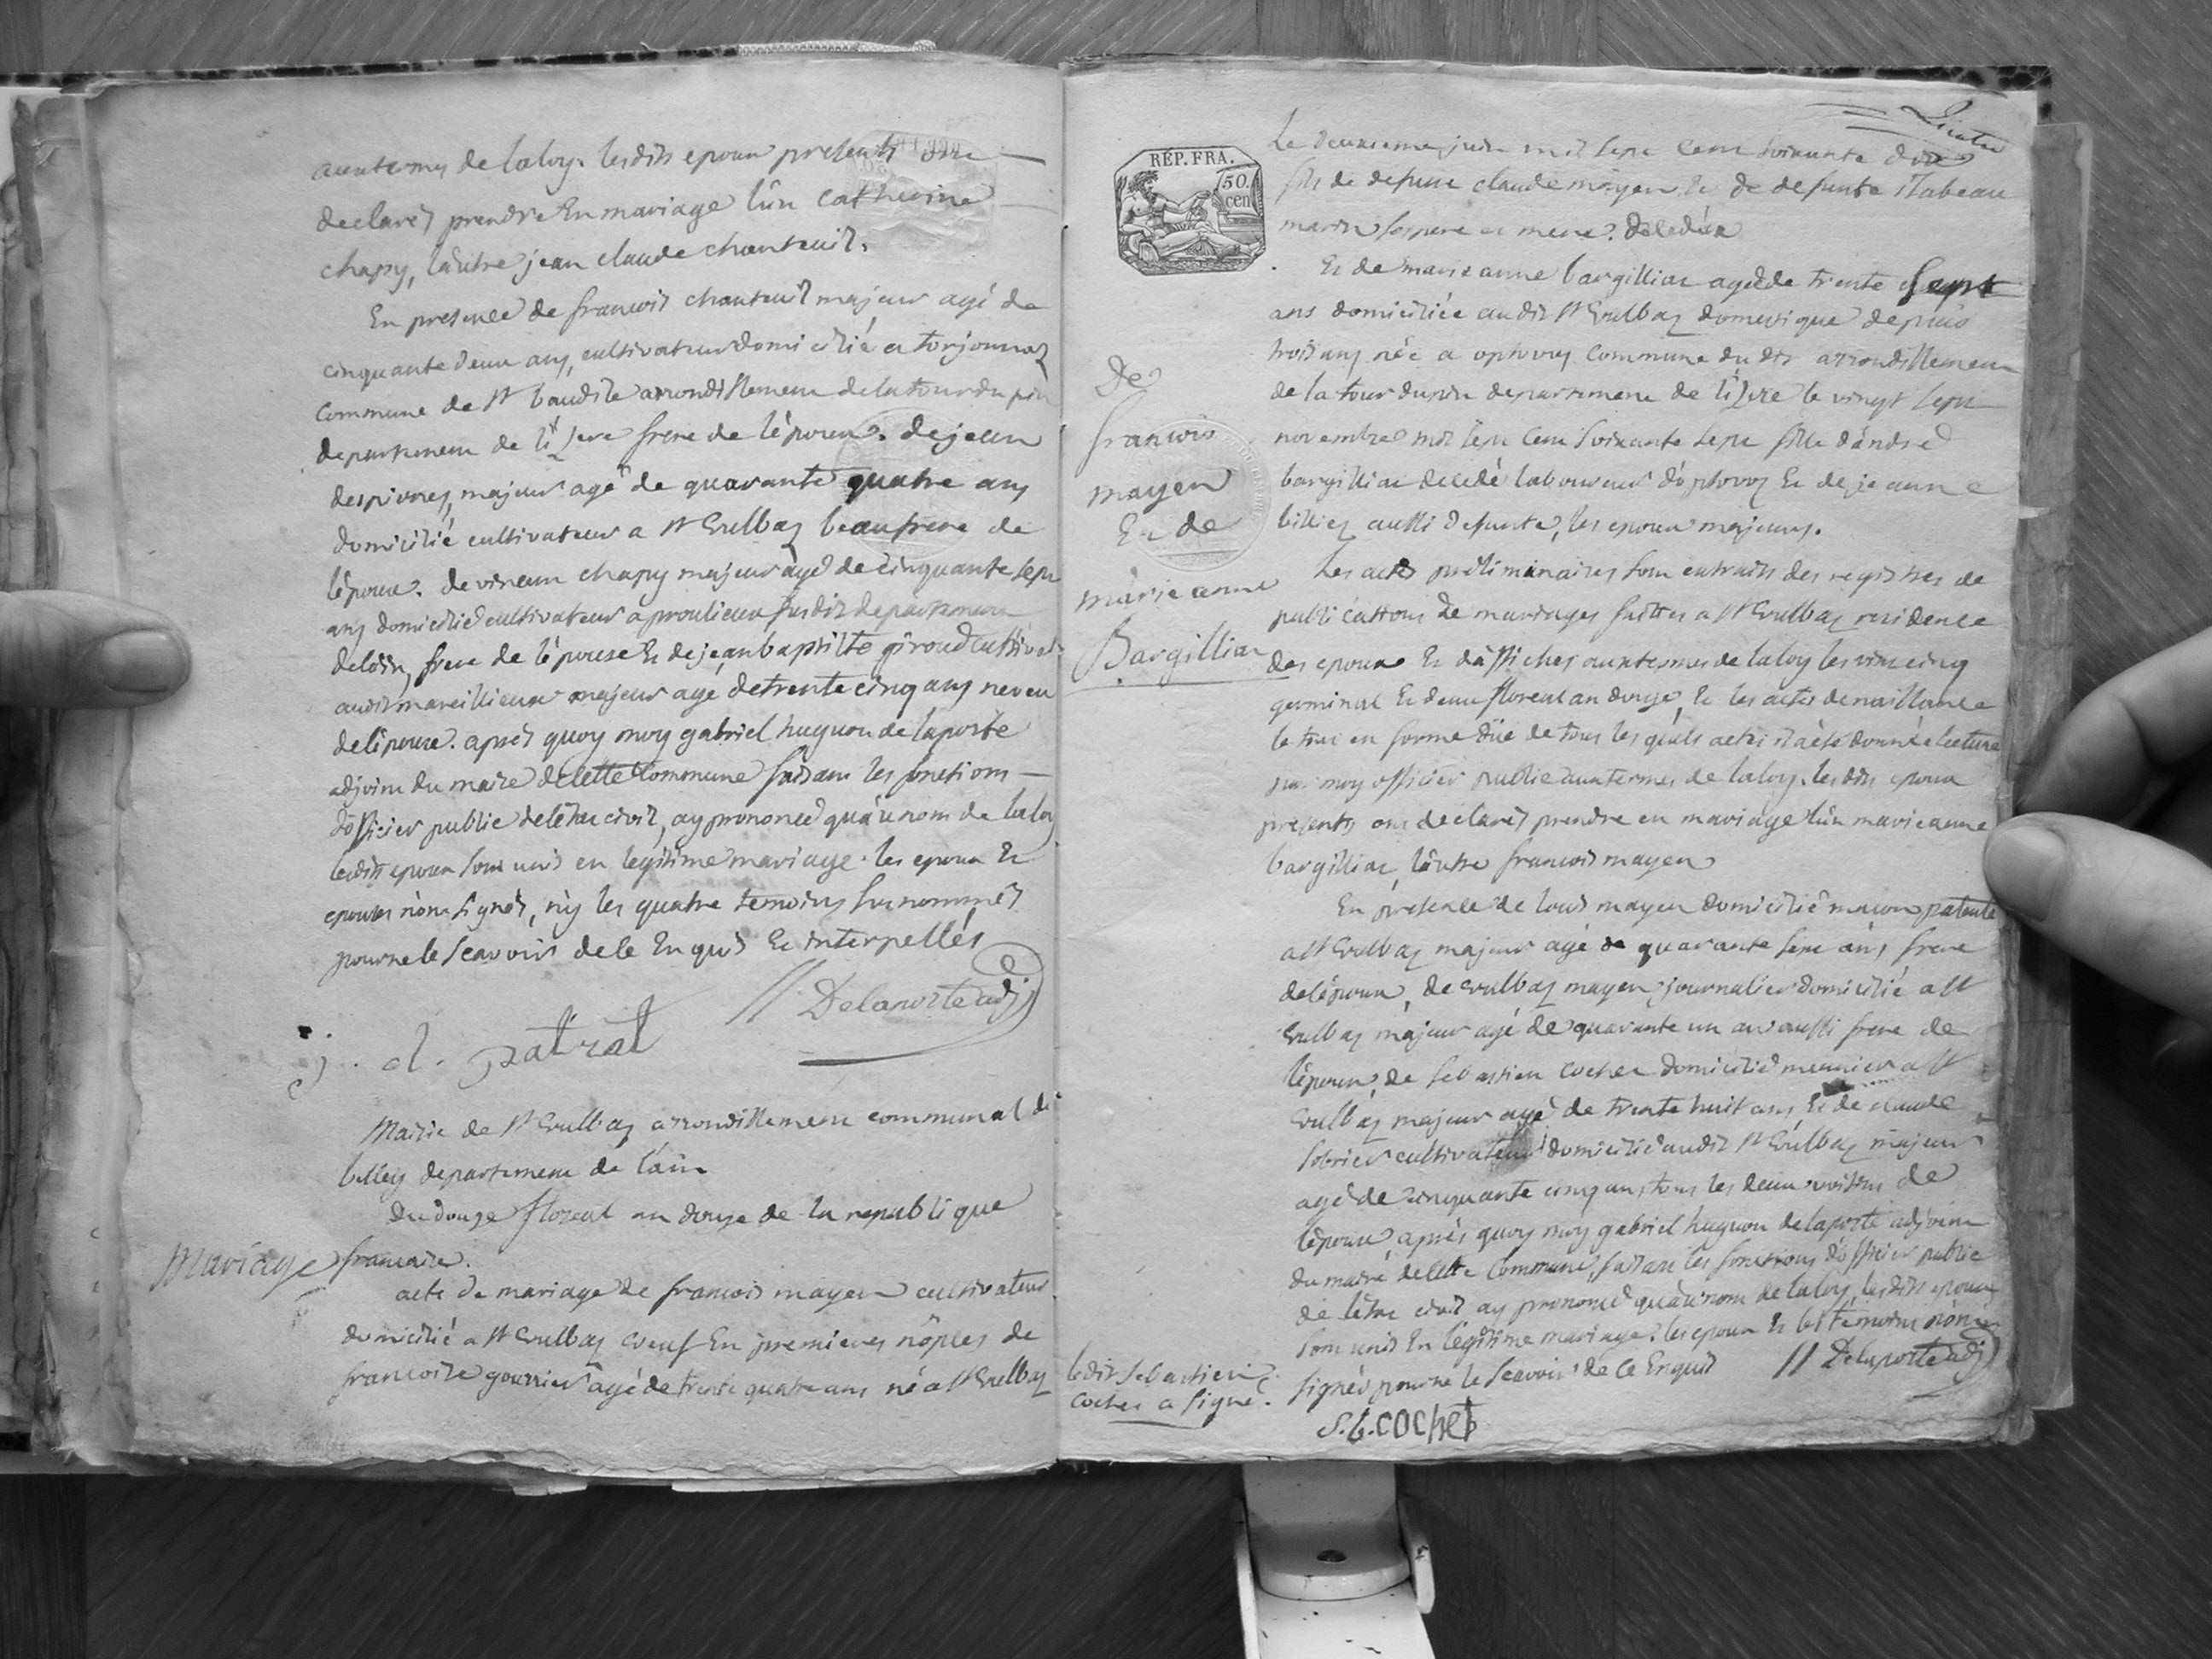 aux termes de la loy. les dits epoux presents ont
declarés prendre En mariage l'ùn catherine
chapy, l'aùtre jean claude chanteuil.
En presence de francois chanteuil majeur agé de
cinquante deux ans, cultivateur domicilié a torjonnaz
commune de st baudile arrondissement de la tour du pin
departement de l'isere frere de l'époux. de jean
despivres, majeur agé de quarante quatre ans
domicilié cultivateur a st Eulbaz beaufrere de
l'époux. de vincent chapy majeur agé de cinquante sept
ans domicilié cultivateur a proulieux susdit departement
de l'ain, frere de l'épouse Et de jean baptiste giroud cultivat
audit mareillieux majeur agé de trente cinq ans neveu
de l'épouse. aprés quoy moy gabriel huguon de laporte
adjoint du maire de cette Commune faisant les fonctions
d'officier public de l'état civil, ay prononcé qu'aù nom de la loy
lesdits epoux sont unis en legitime mariage. les epoux Et
epouses n'ont signés, n'y les quatre temoins surnommés
pour ne le scavoir de ce Enquis Et interpellés
// Delaporte adj
j. cl. patrat
Mairie de st Eulbaz arrondissement communal de
belley departement de l'ain
du douze floreal an douze de la republique
Mariage
francaise.
acte de mariage de francois mayen cultivateur
domicilié a st Eulbaz veuf En premieres nôples de
francoise gourrier agé de trente quatre ans né a st Eulbaz
Le deuxieme juin mil sept cent soixante dix
fils de defunt claude mayen Et de defunte isabeau
marin ses pere et mere.
RÉP. FRA.
50. cen
Et de marie anne bargilliat agée de trente sept
ans domiciliée audit st Eulbaz depuis
trois ans née a optevoz commune du dit arrondissement
de la tour du pin departement de l'isere le vingt sept
novembre mil sept cent soixante sept fille d'andré
bargilliat decedé laboureur d'optevoz Et de jeanne
billiez aussi defunte, les epoux majeurs.
De
francois
mayen
Et de
marie anne
Bargilliat
Les actes préliminaires sont extraits des registres de
publications de mariages faittes a st Eulbaz residence
des epoux Et d'affiches aux termes de la loy les vint cinq
germinal Et deux floreal an douze, Et les actes de naissance
le tout en forme düe de tous les quels actes il a été donné lecture
par moy officier public aux termes de la loy. les dits epoux
presents ont declarés prendre en mariage l'ùn marie anne
bargilliat, l'aùtre francois mayen
En présence de louis mayen domicilié macon patenté
a st Eulbaz majeur agé de quarante sept ans frere
de l'époux, de Eulbaz mayen journalier domicilié a st
Eulbaz majeur agé de quarante un ans aussi frere de
l'époux, de sebastien cochet domicilié meunier a st
Eulbaz majeur agé de trente huit ans Et de claude
sobrier cultivateur domicilié audit st Eulbaz majeur
agé de cinquante cinq ans tous les deux voisins de
l'époux, aprés quoy moy gabriel huguon de laporte adjoint
du maire de cette Commune, faisant les fonctions d'officier public
de l'état civil ay prononcé qu'aù nom de la loy, les dits epoux
sont unis En légitime mariage. les epoux Et les temoins n'ont
signés pour ne le scavoir de ce Enquis // Delaporte adj
ledit sebastien
cochet a signé.
S. b. COCHET